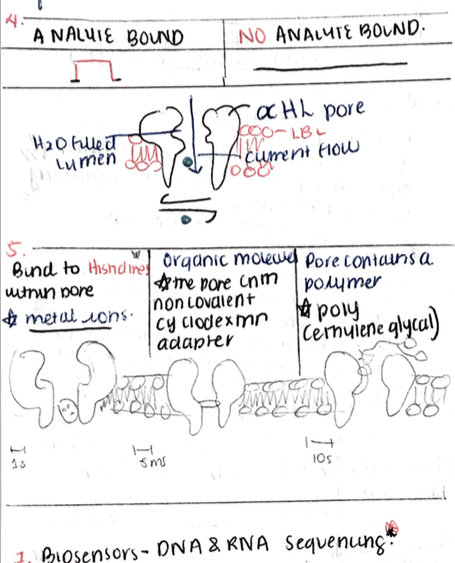 4.
ANALYTE BOUND
NO ANALYTE BOUND.
αHL pore
H2O filled
lumen
LBL
current flow
5.
Bind to Histidines
within pore
metal ions.
Organic molecule
the pore
non covalent
cyclodextrin
adapter
Pore contains a
polymer
poly
(ethylene glycol)
1s
5ms
10s
1. Biosensors - DNA & RNA sequencing